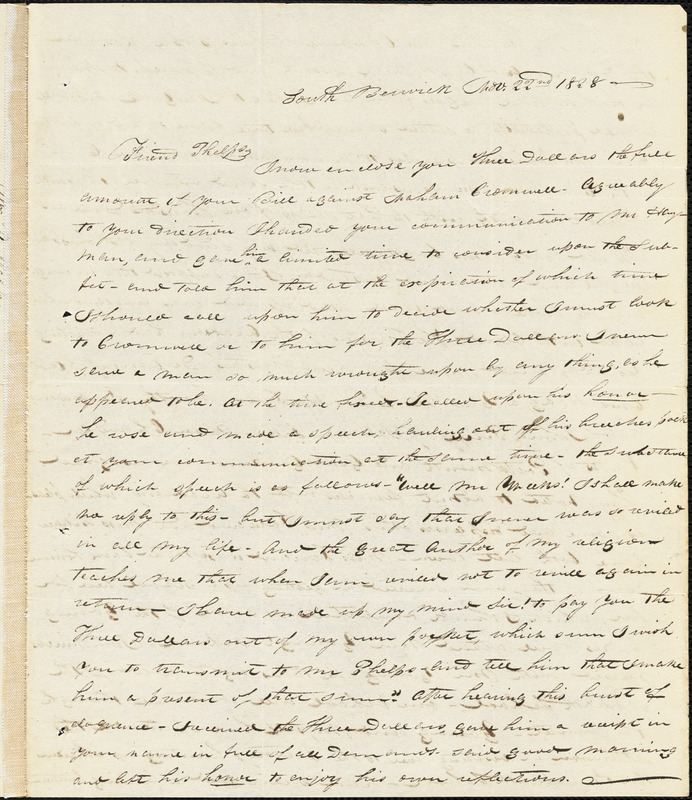 South Berwick Nov. 22nd 1828 —
Friend Phelps,
I now enclose you Three Dollars the full
amount of your Bill against Cromwell - Agreeably
to your direction I handed your communication to Mr Hay-
man, and gave him a limited time to consider upon the Sub-
ject - and told him that at the expiration of which time
I should call upon him to decide whether I must look
to Cromwell or to him for the Three Dollars. I never
saw a man so much wrought upon by any thing, as he
appeared to be. At the time fixed - I called upon his honor -
he rose and made a speech, hauling out of his breeches pock-
et your communication at the same time - the substance
of which speech is as follows - "Well Mr Meeks! I shall make
no reply to this - but I must say that I never was so reviled
" in all my life - And the great Author of my religion
teaches me that when I am reviled not to revile again in
return - I have made up my mind Sir! to pay you the
Three Dollars out of my own pocket, which sum I wish
you to transmit to Mr Phelps and tell him that I make
him a present of that sum." After hearing this burst of
eloquence - I received the Three Dollars, gave him a receipt in
your name in full of all Demands. said good morning
and left his honor to enjoy his own reflections. —